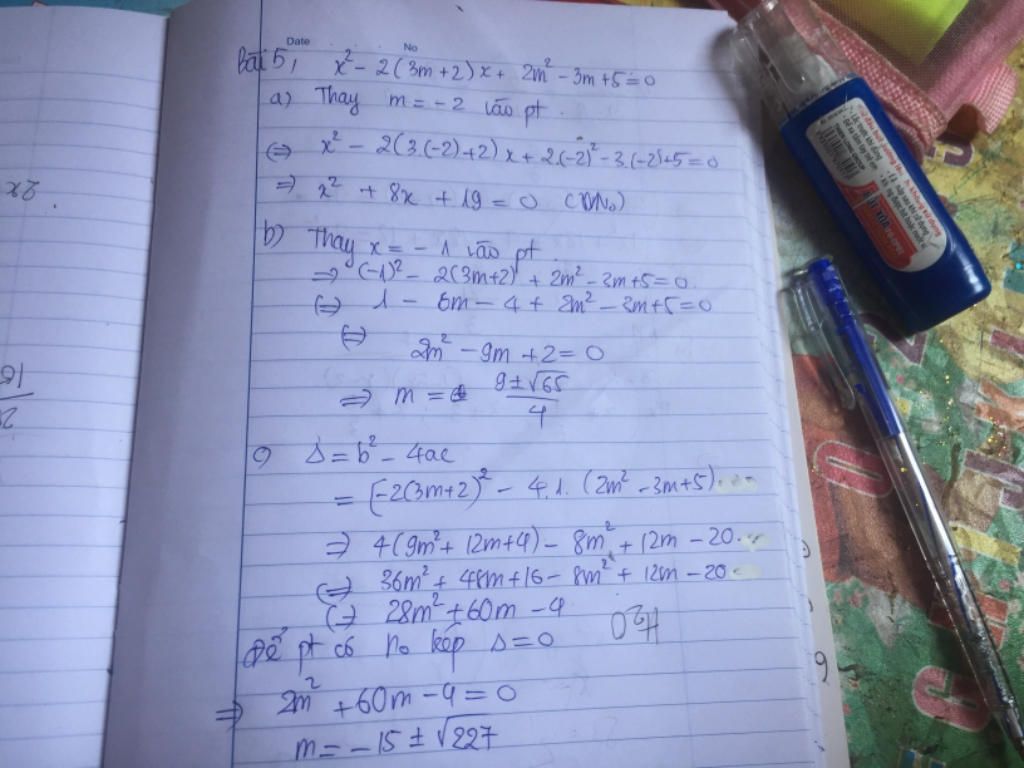 Date No
Bài 5, x² - 2(3m+2)x + 2m² - 3m+5=0
a) Thay m = -2 vào pt.
(=) x² - 2(3.(-2)+2)x + 2.(-2)² - 3.(-2)+5=0
=) x² + 8x + 19 = 0 (VNo)
b) Thay x = - 1 vào pt.
=) (-1)² - 2(3m+2) + 2m² - 3m+5=0.
(=) 1 - 6m - 4 + 2m² - 3m+5=0
(=) 2m² - 9m + 2 = 0
=) m = 9±√65/4
c) Δ = b² - 4ac
= [-2(3m+2)² - 4.1.(2m² - 3m+5)
=) 4(9m²+ 12m+4) - 8m² + 12m - 20.
(=) 36m² + 48m+16 - 8m² + 12m - 20
(=) 28m² +60m - 4
Để pt có No kép Δ=0
H2O
=) 2m² +60m - 4 = 0
m = -15 ± √227
2x
16
9